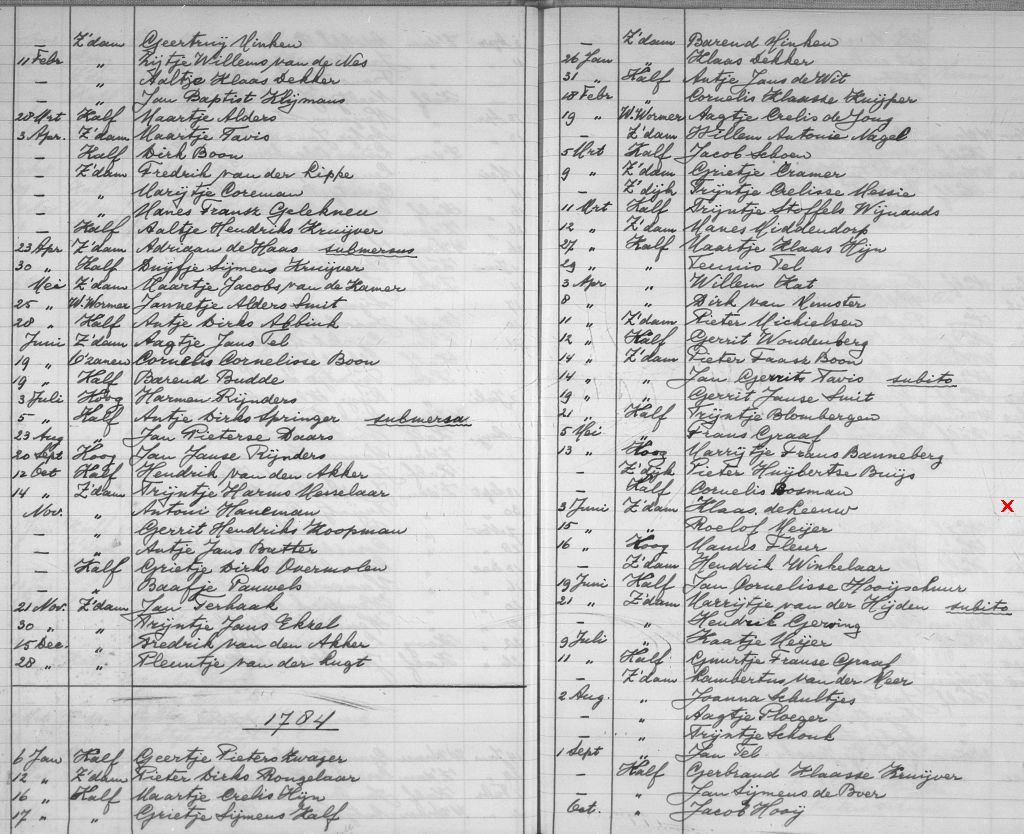 — Z'dam Geertruij Vinken
11 Febr „ Lijtje Willems van de Nes
— „ Aaltje Klaas Dekker
— „ Jan Baptist Klijmans
28 Mrt Half Maartje Alders
3 Apr. Z'dam Maartje Tavis
— Half Dirk Boon
— Z'dam Fredrik van der Lippe
— „ Marijtje Coreman
— „ Hanes Fransz Geleknen
— Half Aaltje Hendriks Kruijver
23 Apr Z'dam Adriaan de Haas submersus
30 „ Half Duijfje Sijmens Kruijver
Mei Z'dam Maartje Jacobs van de Kamer
25 „ W.Wormer Jannetje Alders Smit
28 „ Half Antje Dirks Abbink
Juni Z'dam Aagtje Jans Tel
19 „ O'zanen Cornelis Cornelisse Boon
19 „ Half Barend Budde
3 Juli Hoog Harmen Rijnders
5 „ Half Antje Dirks Springer submersa
23 Aug „ Jan Pieterse Daars
20 Sept Hoog Jan Janse Rijnders
12 Oct Half Hendrik van den Akker
14 „ Z'dam Trijntje Harms Messelaar
Nov. „ Antoni Haneman
— „ Gerrit Hendriks Koopman
— „ Antje Jans Butter
— Half Grietje Dirks Overmolen
— „ Baafje Pauwels
21 Nov. Z'dam Jan Terhaak
30 „ „ Trijntje Jans Ekkel
15 Dec. „ Fredrik van den Akker
28 „ „ Pleuntje van der Lugt
1784
6 Jan Half Geertje Pieters Kwager
12 „ Z'dam Pieter Dirks Rongelaar
16 „ Half Maartje Crelis Hijn
17 „ „ Grietje Sijmens Half
— Z'dam Barend Hinken
26 Jan „ Klaas Dekker
31 „ Half Antje Jans de Wit
18 Febr „ Cornelis Klaasse Kuijper
19 „ W.Wormer Aagtje Crelis de Jong
— Z'dam Willem Antonie Nagel
5 Mrt Half Jacob Schoen
9 „ Z'dam Grietje Cramer
— Z'dijk Trijntje Crelisse Messie
11 Mrt Half Trijntje Stoffels Wijnands
12 „ Z'dam Manes Middendorp
27 „ Half Maartje Klaas Hijn
29 „ „ Teunis Tel
3 Apr „ Willem Kat
8 „ „ Dirk van Munster
11 „ Z'dam Pieter Michielsen
12 „ Half Gerrit Woudenberg
14 „ Z'dam Pieter Faasz Boon
14 „ „ Jan Gerrits Tavis subito
19 „ „ Gerrit Janse Smit
21 „ Half Trijntje Blombergen
5 Mei „ Frans Graaf
13 „ Hoog Marrijtje Frans Banneberg
— Z'dijk Pieter Huijbertse Buijs
— Half Cornelis Bosman
3 Juni Z'dam Klaas de Leeuw X
15 „ „ Roelof Meijer
16 „ Hoog Manus Fleur
— Z'dam Hendrik Winkelaar
19 Juni Half Jan Cornelisse Hooijschuur
21 „ Z'dam Marrijtje van der Hijden subito
— „ Hendrik Gerving
9 Juli „ Kaatje Meijer
11 „ Half Guurtje Franse Graaf
— Z'dam Lambertus van der Meer
2 Aug. „ Joanna Schultjes
— „ Aagtje Ploeger
— „ Trijntje Schonk
1 Sept „ Jan Tel
— Half Gerbrand Klaasse Kruijver
— „ Jan Sijmens de Boer
Oct. „ Jacob Hooij